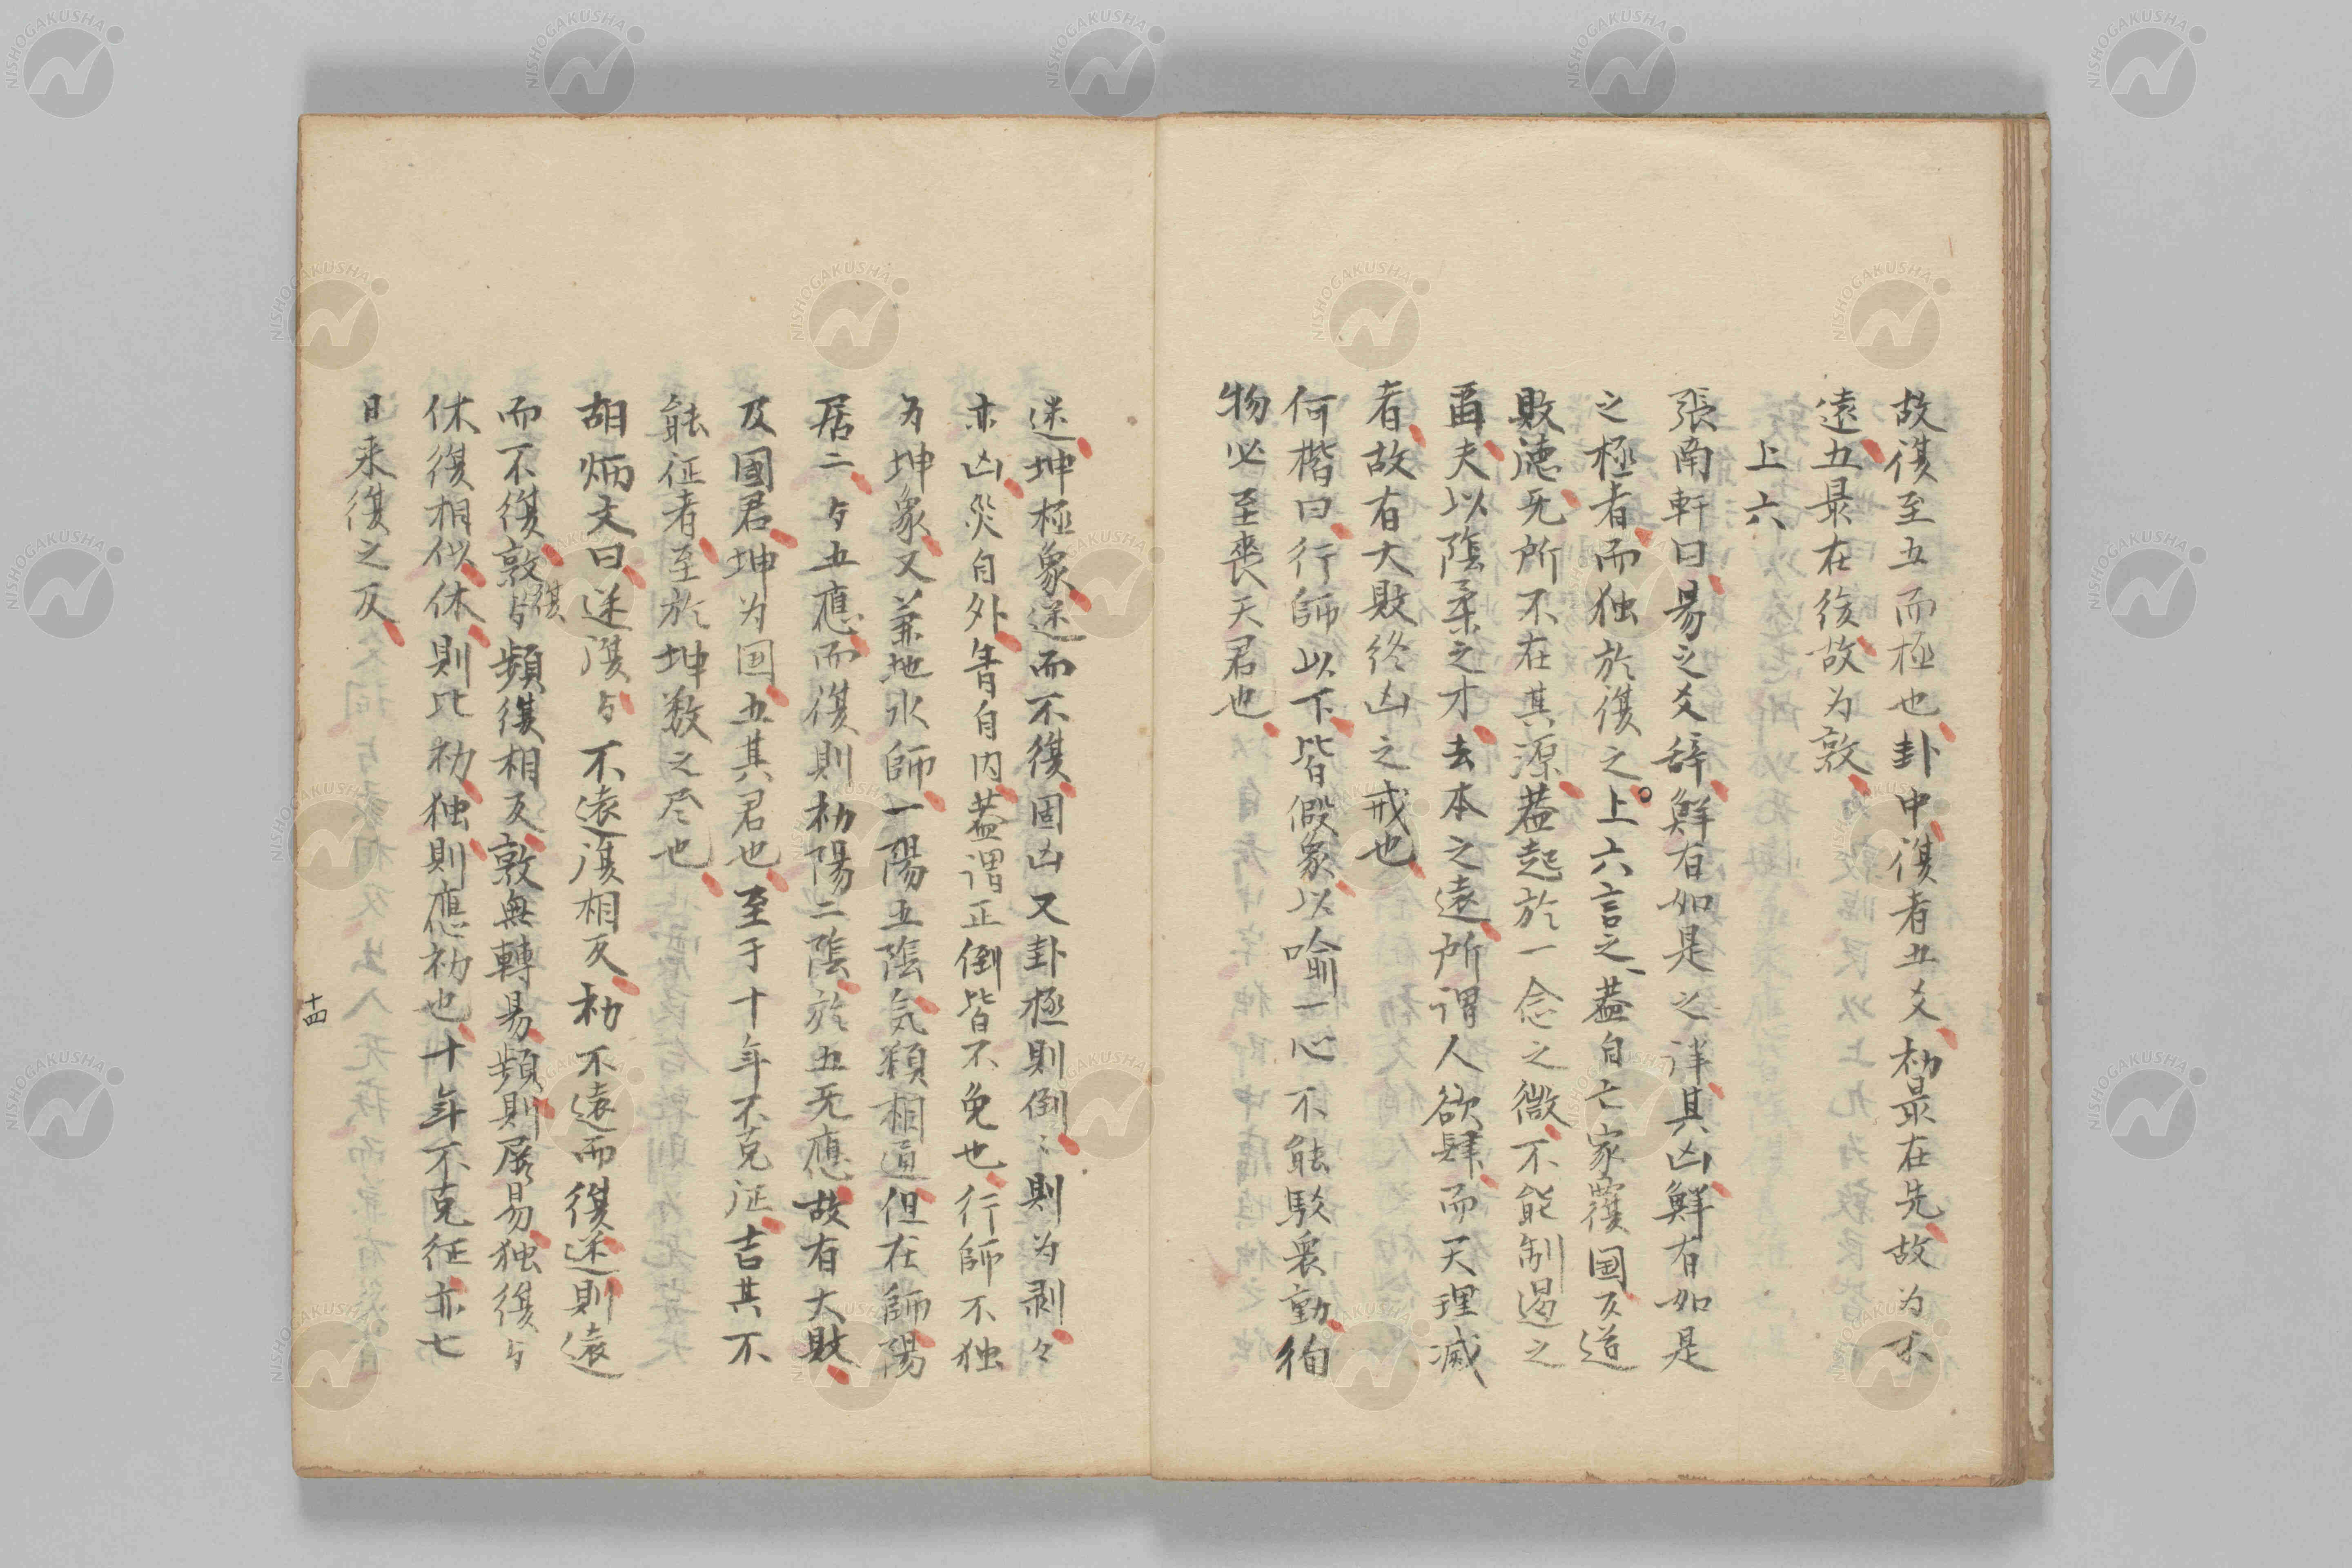 故復至五而極也卦中復者五爻初最在先故为不
遠五最在後故为敦
上六
張南軒曰易之爻辞鮮有如是之詳其凶鮮有如是
之極者而独於復之上六言之蓋自亡家覆国反道
敗徳无所不在其源蓋起於一念之微不能制遏之
耳夫以陰柔之才去本之遠所謂人欲肆而天理滅
者故有大敗終凶之戒也
何楷曰行師以下皆假象以喩一心不能馭衆動徇
物必至喪天君也
迷坤極象迷而不復固凶又卦極則倒〻則为剥々
亦凶災自外眚自内蓋謂正倒皆不免也行師不独
为坤象又兼地水師一陽五陰気類相通但在師陽
居二与五應而復則初陽二陰於五无應故有大敗
及國君坤为国五其君也至于十年不克征吉其不
能征者至於坤数之尽也
胡炳文曰迷復与不遠復相反初不遠而復迷則遠
而不復敦復与頻復相反敦無轉易頻則屡易独復与
休復相似休則比初独則應初也十年不克征亦七
日来復之反
十四
NISHOGAKUSHA